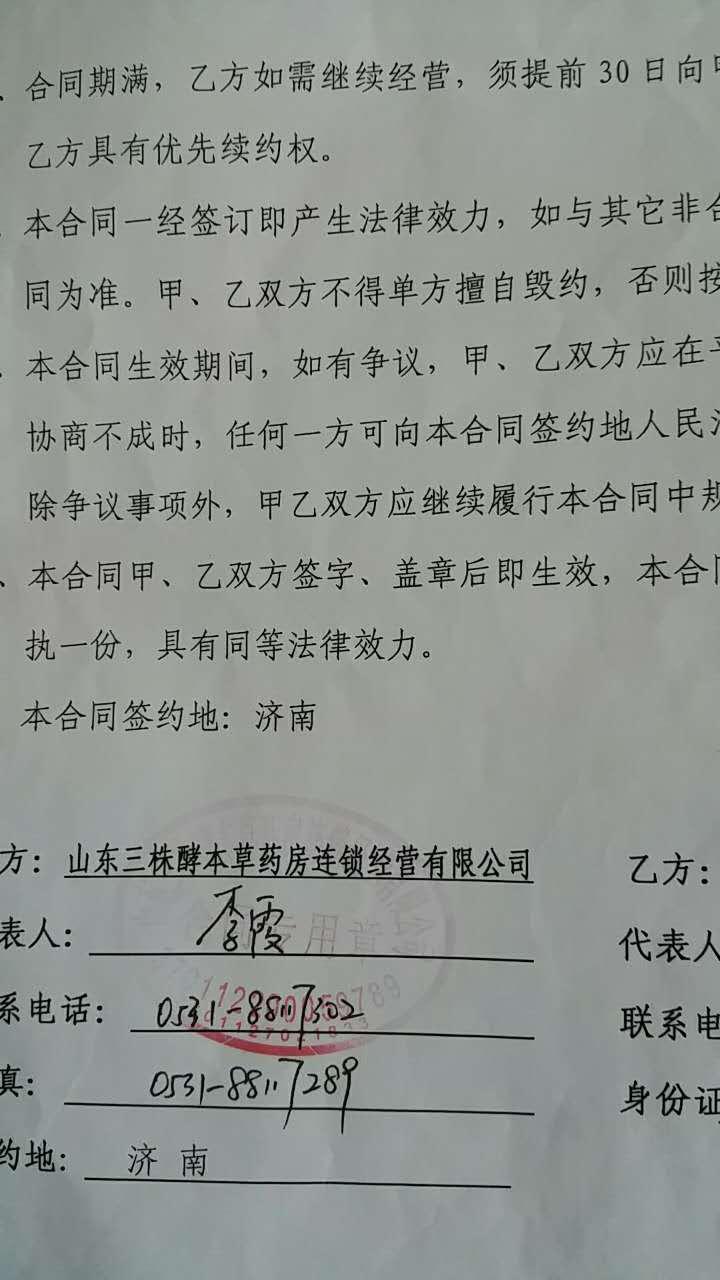 、合同期满，乙方如需继续经营，须提前 30 日向甲
乙方具有优先续约权。
本合同一经签订即产生法律效力，如与其它非合
同为准。甲、乙双方不得单方擅自毁约，否则按
本合同生效期间，如有争议，甲、乙双方应在平
协商不成时，任何一方可向本合同签约地人民法
除争议事项外，甲乙双方应继续履行本合同中规
、本合同甲、乙双方签字、盖章后即生效，本合同
执一份，具有同等法律效力。
本合同签约地：济南
方：山东三株酵本草药房连锁经营有限公司
乙方：
表人：李霞
代表人
专用章
系电话：0531-88117302
联系电
真：0531-88117289
身份证
约地：济 南